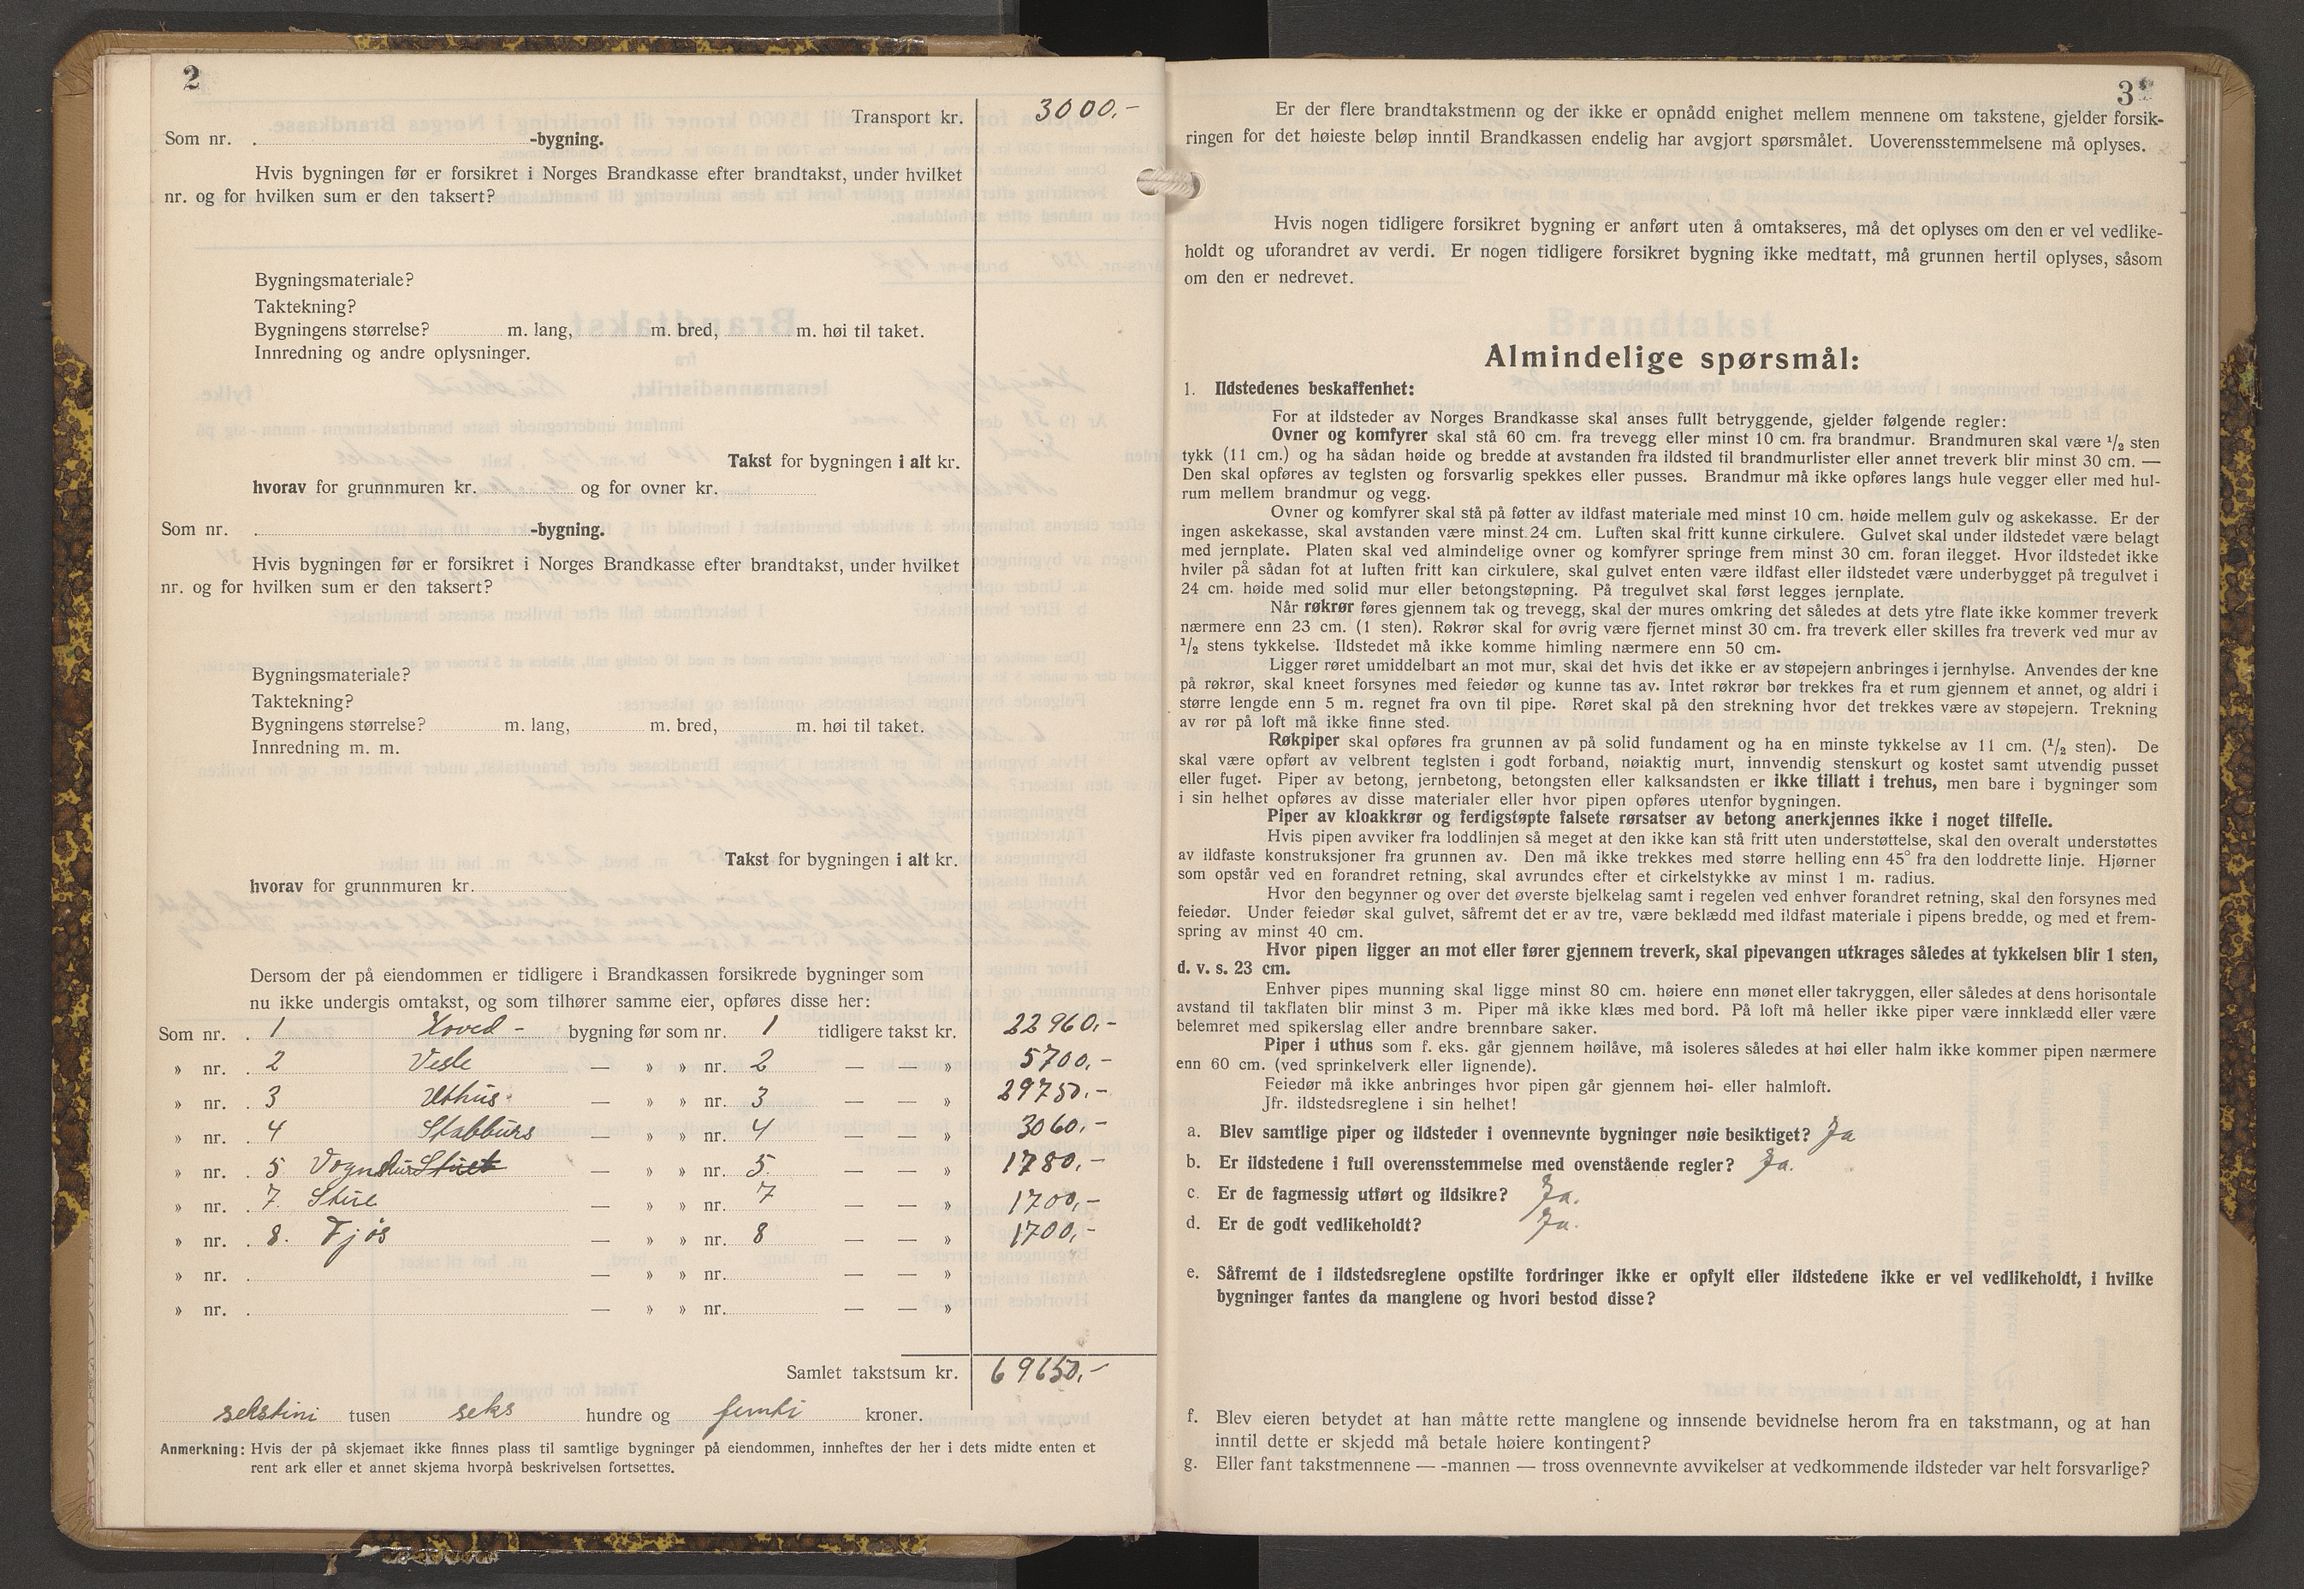 2
Transport kr. 3000.-
Som nr. -bygning.
Hvis bygningen før er forsikret i Norges Brandkasse efter brandtakst, under hvilket
nr. og for hvilken sum er den taksert?
Bygningsmateriale?
Taktekning?
Bygningens størrelse? m. lang, m. bred, m. høi til taket.
Innredning og andre oplysninger.
Takst for bygningen i alt kr.
hvorav for grunnmuren kr. og for ovner kr.
Som nr. -bygning.
Hvis bygningen før er forsikret i Norges Brandkasse efter brandtakst, under hvilket
nr. og for hvilken sum er den taksert?
Bygningsmateriale?
Taktekning?
Bygningens størrelse? m. lang, m. bred, m. høi til taket.
Innredning m. m.
Takst for bygningen i alt kr.
hvorav for grunnmuren kr.
Dersom der på eiendommen er tidligere i Brandkassen forsikrede bygninger som
nu ikke undergis omtakst, og som tilhører samme eier, opføres disse her:
Som nr. 1 Hoved- bygning før som nr. 1 tidligere takst kr. 22960.-
» nr. 2 Vesle — » » nr. 2 — — » 5700.-
» nr. 3 Uthus. — » » nr. 3 — — » 29750.-
» nr. 4 Stabburs — » » nr. 4 — — » 3060.-
» nr. 5 Vognskur — » » nr. 5. — — » 1780.-
» nr. 7. — » » nr. 7 — — » 1700.-
» nr. 8. Fjøs — » » nr. 8 — — » 1700.-
» nr. — » » nr. — — »
» nr. — » » nr. — — »
Samlet takstsum kr. 69650.-
sekstini tusen seks hundre og femti kroner.
Anmerkning: Hvis der på skjemaet ikke finnes plass til samtlige bygninger på eiendommen, innheftes der her i dets midte enten et
rent ark eller et annet skjema hvorpå beskrivelsen fortsettes.
3
Er der flere brandtakstmenn og der ikke er opnådd enighet mellem mennene om takstene, gjelder forsik-
ringen for det høieste beløp inntil Brandkassen endelig har avgjort spørsmålet. Uoverensstemmelsene må oplyses.
Hvis nogen tidligere forsikret bygning er anført uten å omtakseres, må det oplyses om den er vel vedlike-
holdt og uforandret av verdi. Er nogen tidligere forsikret bygning ikke medtatt, må grunnen hertil oplyses, såsom
om den er nedrevet.
Almindelige spørsmål:
1. Ildstedenes beskaffenhet:
For at ildsteder av Norges Brandkasse skal anses fullt betryggende, gjelder følgende regler:
Ovner og komfyrer skal stå 60 cm. fra trevegg eller minst 10 cm. fra brandmur. Brandmuren skal være ½ sten
tykk (11 cm.) og ha sådan høide og bredde at avstanden fra ildsted til brandmurlister eller annet treverk blir minst 30 cm. —
Den skal opføres av teglsten og forsvarlig spekkes eller pusses. Brandmur må ikke opføres langs hule vegger eller med hul-
rum mellem brandmur og vegg.
Ovner og komfyrer skal stå på føtter av ildfast materiale med minst 10 cm. høide mellem gulv og askekasse. Er der
ingen askekasse, skal avstanden være minst 24 cm. Luften skal fritt kunne cirkulere. Gulvet skal under ildstedet være belagt
med jernplate. Platen skal ved almindelige ovner og komfyrer springe frem minst 30 cm. foran ilegget. Hvor ildstedet ikke
hviler på sådan fot at luften fritt kan cirkulere, skal gulvet enten være ildfast eller ildstedet være underbygget på tregulvet i
24 cm. høide med solid mur eller betongstøpning. På tregulvet skal først legges jernplate.
Når røkrør føres gjennem tak og trevegg, skal der mures omkring det således at dets ytre flate ikke kommer treverk
nærmere enn 23 cm. (1 sten). Røkrør skal for øvrig være fjernet minst 30 cm. fra treverk eller skilles fra treverk ved mur av
½ stens tykkelse. Ildstedet må ikke komme himling nærmere enn 50 cm.
Ligger røret umiddelbart an mot mur, skal det hvis det ikke er av støpejern anbringes i jernhylse. Anvendes der kne
på røkrør, skal kneet forsynes med feiedør og kunne tas av. Intet røkrør bør trekkes fra et rum gjennem et annet, og aldri i
større lengde enn 5 m. regnet fra ovn til pipe. Røret skal på den strekning hvor det trekkes være av støpejern. Trekning
av rør på loft må ikke finne sted.
Røkpiper skal opføres fra grunnen av på solid fundament og ha en minste tykkelse av 11 cm. (½ sten). De
skal være opført av velbrent teglsten i godt forband, nøiaktig murt, innvendig stenskurt og kostet samt utvendig pusset
eller fuget. Piper av betong, jernbetong, betongsten eller kalksandsten er ikke tillatt i trehus, men bare i bygninger som
i sin helhet opføres av disse materialer eller hvor pipen opføres utenfor bygningen.
Piper av kloakkrør og ferdigstøpte falsete rørsatser av betong anerkjennes ikke i noget tilfelle.
Hvis pipen avviker fra loddlinjen så meget at den ikke kan stå fritt uten understøttelse, skal den overalt understøttes
av ildfaste konstruksjoner fra grunnen av. Den må ikke trekkes med større helling enn 45° fra den loddrette linje. Hjørner
som opstår ved en forandret retning, skal avrundes efter et cirkelstykke av minst 1 m. radius.
Hvor den begynner og over det øverste bjelkelag samt i regelen ved enhver forandret retning, skal den forsynes med
feiedør. Under feiedør skal gulvet, såfremt det er av tre, være beklædd med ildfast materiale i pipens bredde, og med et frem-
spring av minst 40 cm.
Hvor pipen ligger an mot eller fører gjennem treverk, skal pipevangen utkrages således at tykkelsen blir 1 sten,
d. v. s. 23 cm.
Enhver pipes munning skal ligge minst 80 cm. høiere enn mønet eller takryggen, eller således at dens horisontale
avstand til takflaten blir minst 3 m. Piper må ikke klæs med bord. På loft må heller ikke piper være innklædd eller være
belemret med spikerslag eller andre brennbare saker.
Piper i uthus som f. eks. går gjennem høilåve, må isoleres således at høi eller halm ikke kommer pipen nærmere
enn 60 cm. (ved sprinkelverk eller lignende).
Feiedør må ikke anbringes hvor pipen går gjennem høi- eller halmloft.
Jfr. ildstedsreglene i sin helhet!
a. Blev samtlige piper og ildsteder i ovennevnte bygninger nøie besiktiget? Ja
b. Er ildstedene i full overensstemmelse med ovenstående regler? Ja.
c. Er de fagmessig utført og ildsikre? Ja.
d. Er de godt vedlikeholdt? Ja.
e. Såfremt de i ildstedsreglene opstilte fordringer ikke er opfylt eller ildstedene ikke er vel vedlikeholdt, i hvilke
bygninger fantes da manglene og hvori bestod disse?
f. Blev eieren betydet at han måtte rette manglene og innsende bevidnelse herom fra en takstmann, og at han
inntil dette er skjedd må betale høiere kontingent?
g. Eller fant takstmennene — -mannen — tross ovennevnte avvikelser at vedkommende ildsteder var helt forsvarlige?